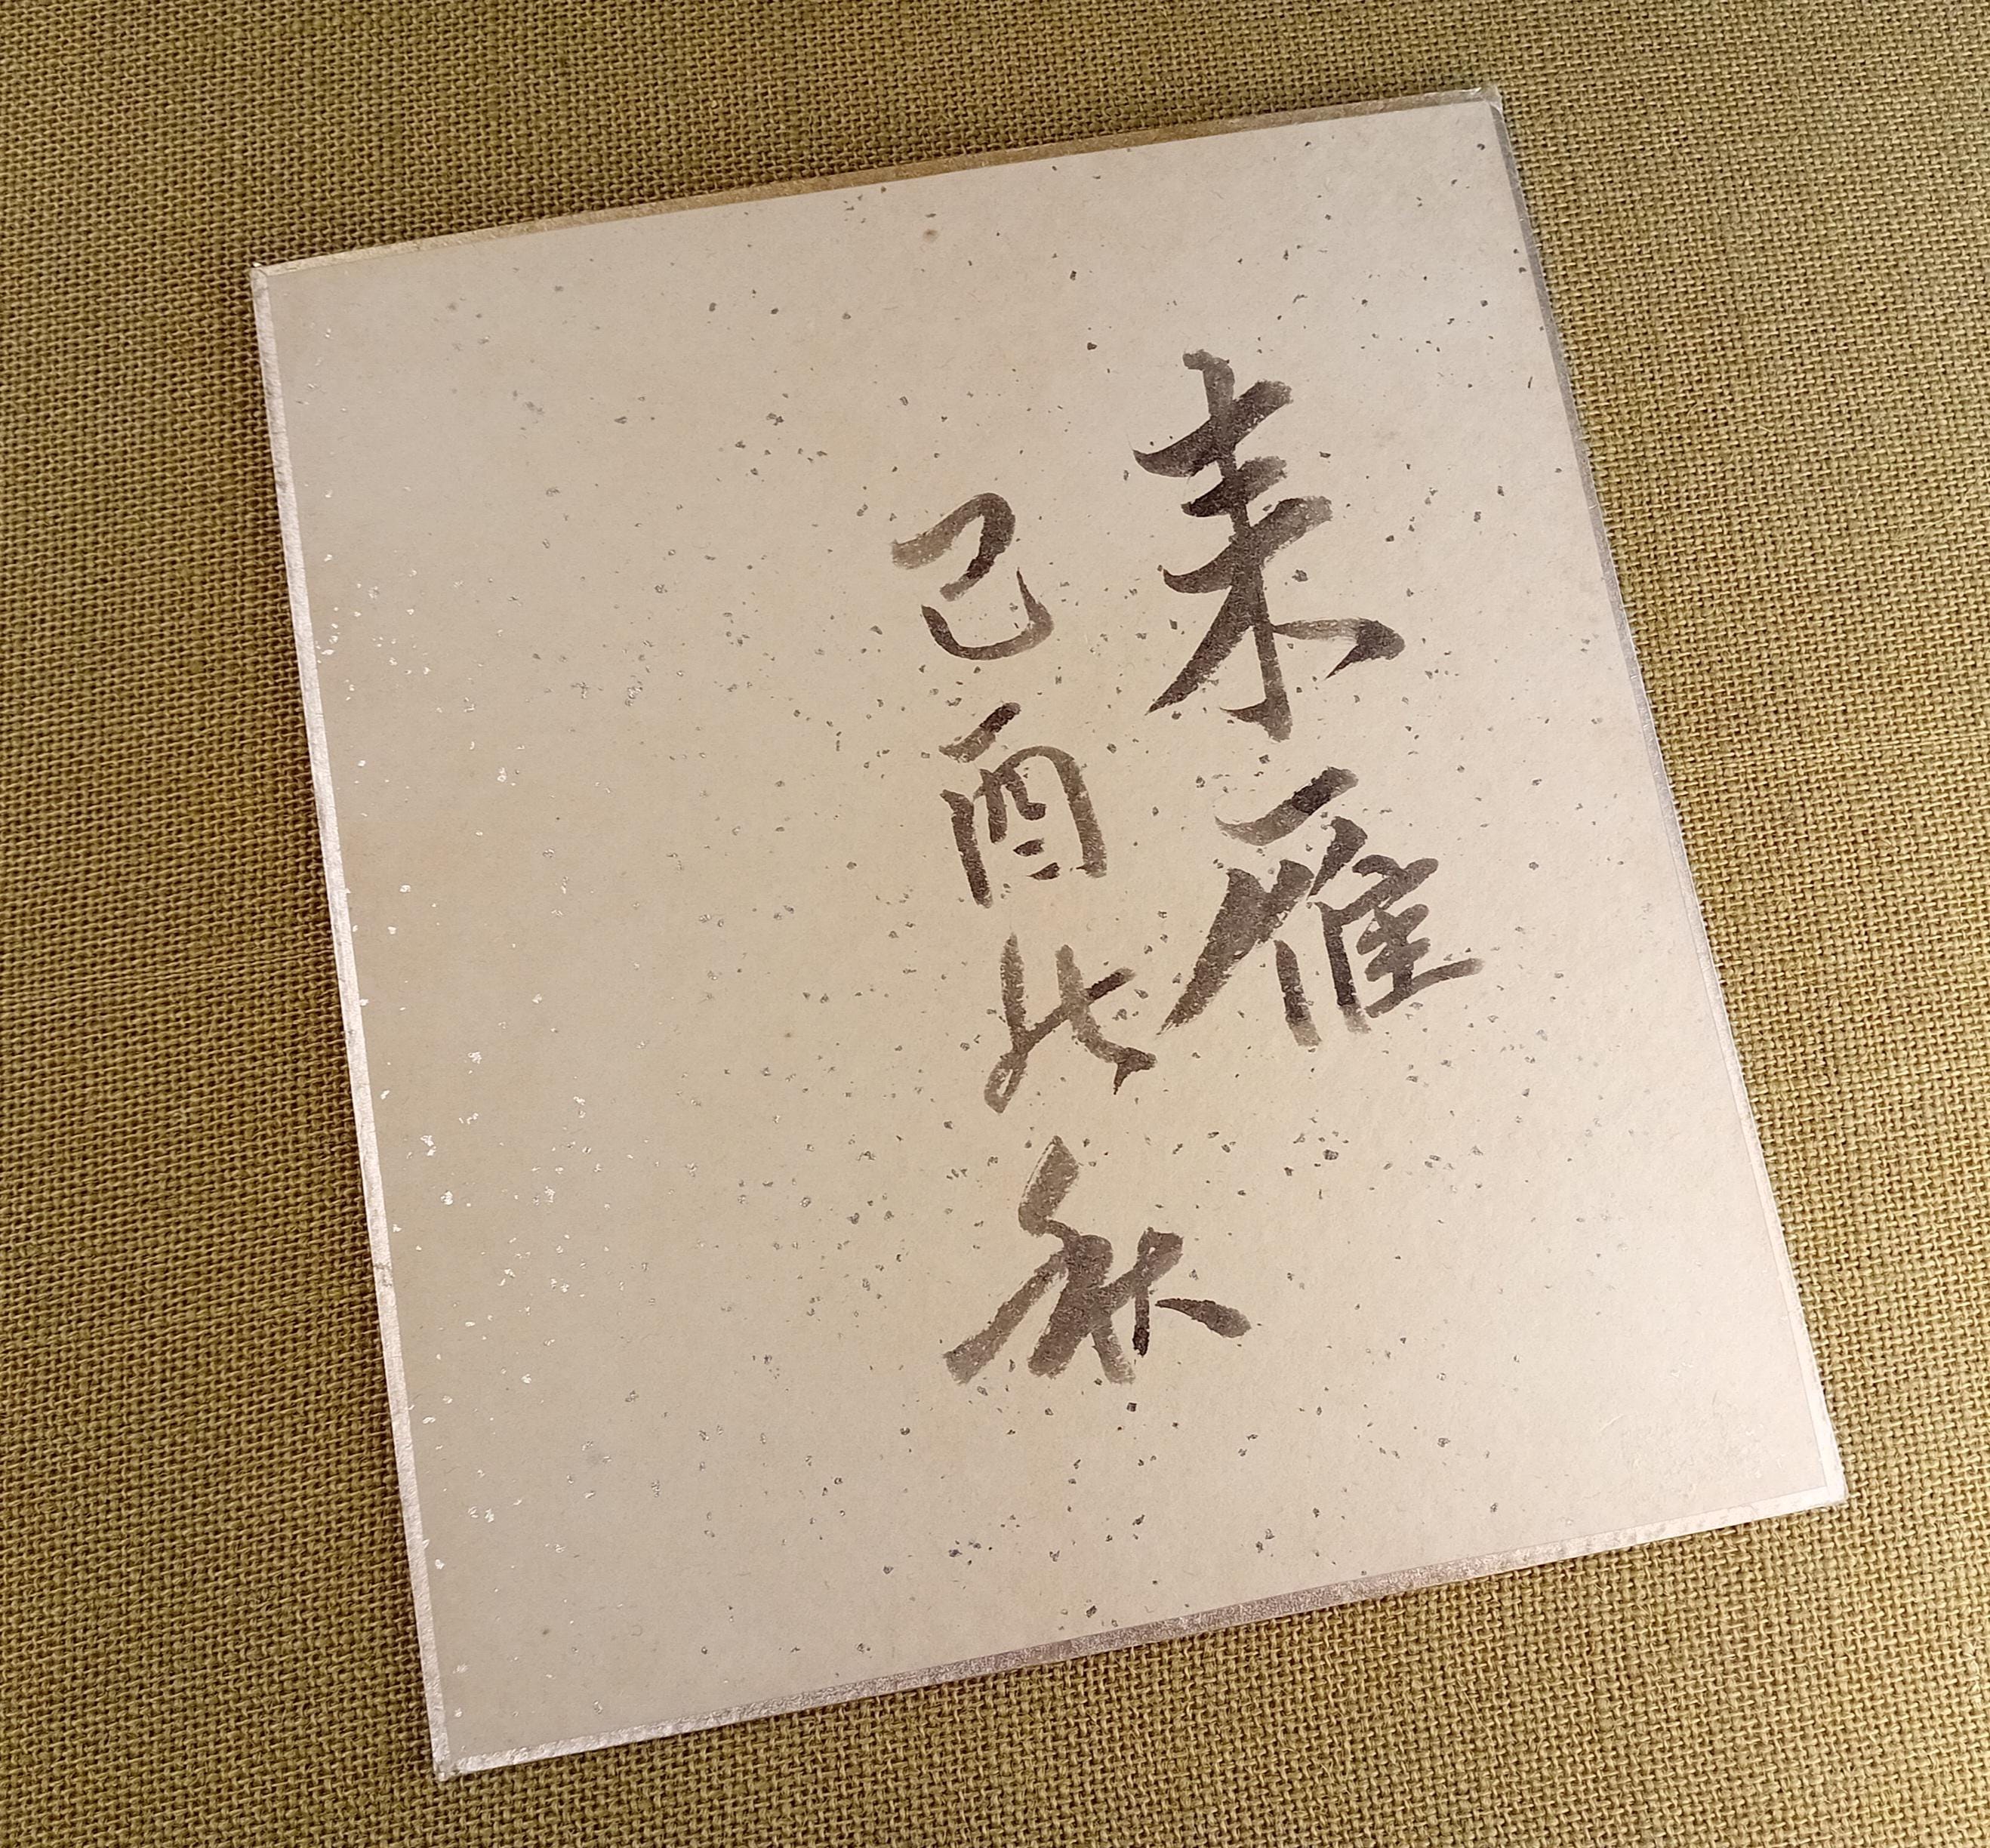 来雁
己酉の秋